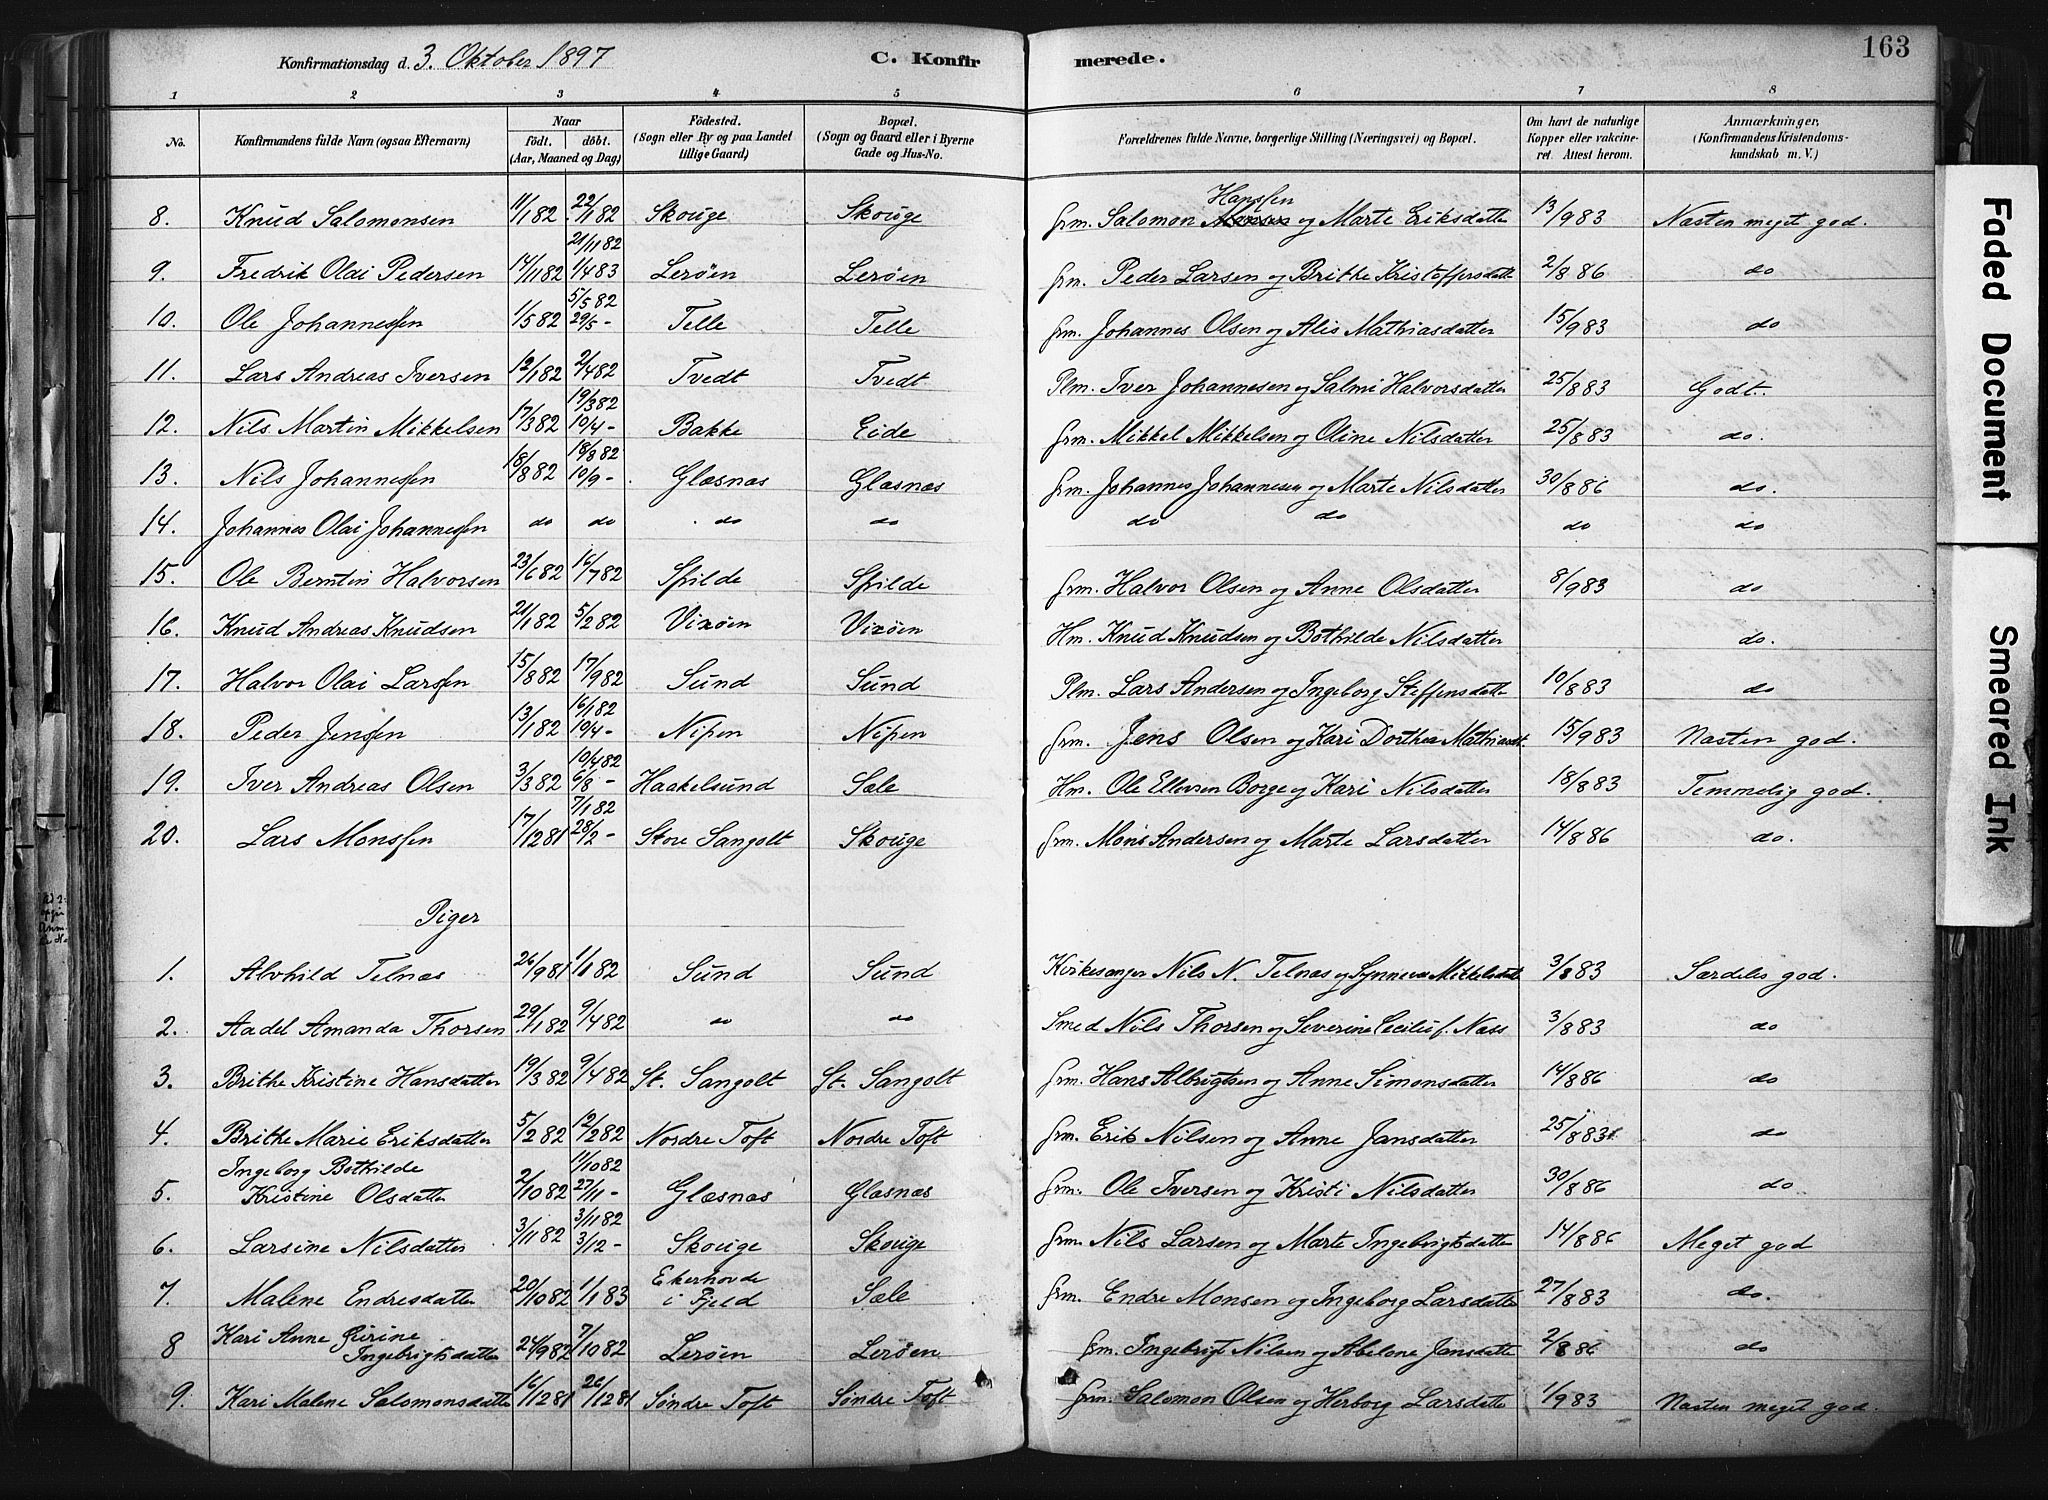 Konfirmationsdag d. 3. Oktober 1897 C. Konfirmerede. 163
1 2 3 4 5 6 7 8
No. Konfirmandens fulde Navn (ogsaa Efternavn) Naar født. døbt. (Aar, Maaned og Dag) Födested. (Sogn eller By og paa Landet tillige Gaard) Bopæl. (Sogn og Gaard eller i Byerne Gade og Hus-No. Forældrenes fulde Navne, borgerlige Stilling (Næringsvei) og Bopæl. Om havt de naturlige Kopper eller vakcineret. Attest herom. Anmærkninger, (Konfirmandens Kristendomskundskab m. V.)
8. Knud Salomonsen 11/1 82 22/1 82 Skouge Skouge Grm. Salomon Hanssen og Marte Eriksdatter 13/9 83 Næsten meget god.
9. Fredrik Olai Pedersen 14/11 82 21/11 82 1/4 83 Lerøen Lerøen Grm. Peder Larsen og Brithe Kristoffersdatt 2/8 86 do
10. Ole Johannessen 1/5 82 5/5 82 29/5 - Telle Telle Grm. Johannes Olsen og Alis Mathiasdatter 15/9 83 do
11. Lars Andreas Iversen 12/1 82 2/4 82 Tvedt Tvedt Plm. Iver Johannesen og Salmi Halvorsdatter 25/8 83 Godt.
12. Nils Martin Mikkelsen 17/3 82 19/3 82 10/4 - Bakke Eide Grm. Mikkel Mikkelsen og Oline Nilsdatter 25/8 83 do.
13. Nils Johannessen 18/8 82 18/8 82 10/9 - Glæsnæs Glæsnæs Grm. Johannes Johannesen og Marte Nilsdatter 30/8 86 do.
14. Johannes Olai Johannessen do do do do do do do do
15. Ole Berntin Halvorsen 23/6 82 16/7 82 Spilde Spilde Grm. Halvor Olsen og Anne Olsdatter 8/9 83 do
16. Knud Andreas Knudsen 21/1 82 5/2 82 Vixøen Vixøen Hm. Knud Knudsen og Bothilde Nilsdatter do.
17. Halvor Olai Larssen 15/8 82 17/9 82 Sund Sund Plm. Lars Andersen og Ingeborg Steffensdatte 10/8 83 do
18. Peder Jenssen 13/1 82 16/1 82 10/4 - Nipen Nipen Grm. Jens Olsen og Kari Dorthea Mathiasdt. 15/9 83 Næsten god.
19. Iver Andreas Olsen 3/3 82 10/4 82 6/8 - Haakelsund Sæle Hm. Ole Ellevsen Borge og Kari Nilsdatter 18/8 83 Temmelig god.
20. Lars Monssen 17/12 81 7/1 82 28/2 - Store Sangolt Skouge Grm. Mons Andersen og Marte Larsdatter 14/8 86 do.
Piger
1. Alvhild Telnæs 26/9 81 1/1 82 Sund Sund Kirkesanger Nils N. Telnæs og Synneva Mikkelsdatt 3/8 83 Særdeles god.
2. Aadel Amanda Thorsen 29/1 82 9/4 82 do do Smed Nils Thorsen og Severine Cecilie f. Næss 3/8 83 do
3. Brithe Kristine Hansdatter 19/3 82 9/4 82 St. Sangolt St. Sangolt Grm. Hans Albrigtsen og Anne Simonsdatter 14/8 86 do
4. Brithe Marie Eriksdatter 5/2 82 12/2 82 Nordre Toft Nordre Toft Grm. Erik Nilsen og Anne Jansdatter 25/8 83 do
5. Ingeborg Bothilde Kristine Olsdatter 2/10 82 11/10 82 27/11 - Glæsnæs Glæsnæs Grm. Ole Iversen og Kristi Nilsdatter 30/8 86 do
6. Larsine Nilsdatter 3/11 82 3/11 82 3/12 - Skouge Skouge Grm. Nils Larsen og Marte Ingebrigtsdatte 14/8 86 Meget god
7. Malene Endresdatter 20/10 82 1/1 83 Ekerhovde i Fjeld Sæle Grm. Endre Monsen og Ingeborg Larsdatter 27/8 83 do.
8 Kari Anne Girine Ingebrigtsdatter 24/9 82 7/10 82 Lerøen Lerøen Grm. Ingebrigt Nilsen og Abelone Jansdatte 2/8 86 do
9. Kari Malene Salomonsdatter 16/12 81 26/12 81 Søndre Toft Søndre Toft Grm. Salomon Olsen og Herborg Larsdatte 1/9 83 Næsten meget god.
Faded Document
Smeared Ink